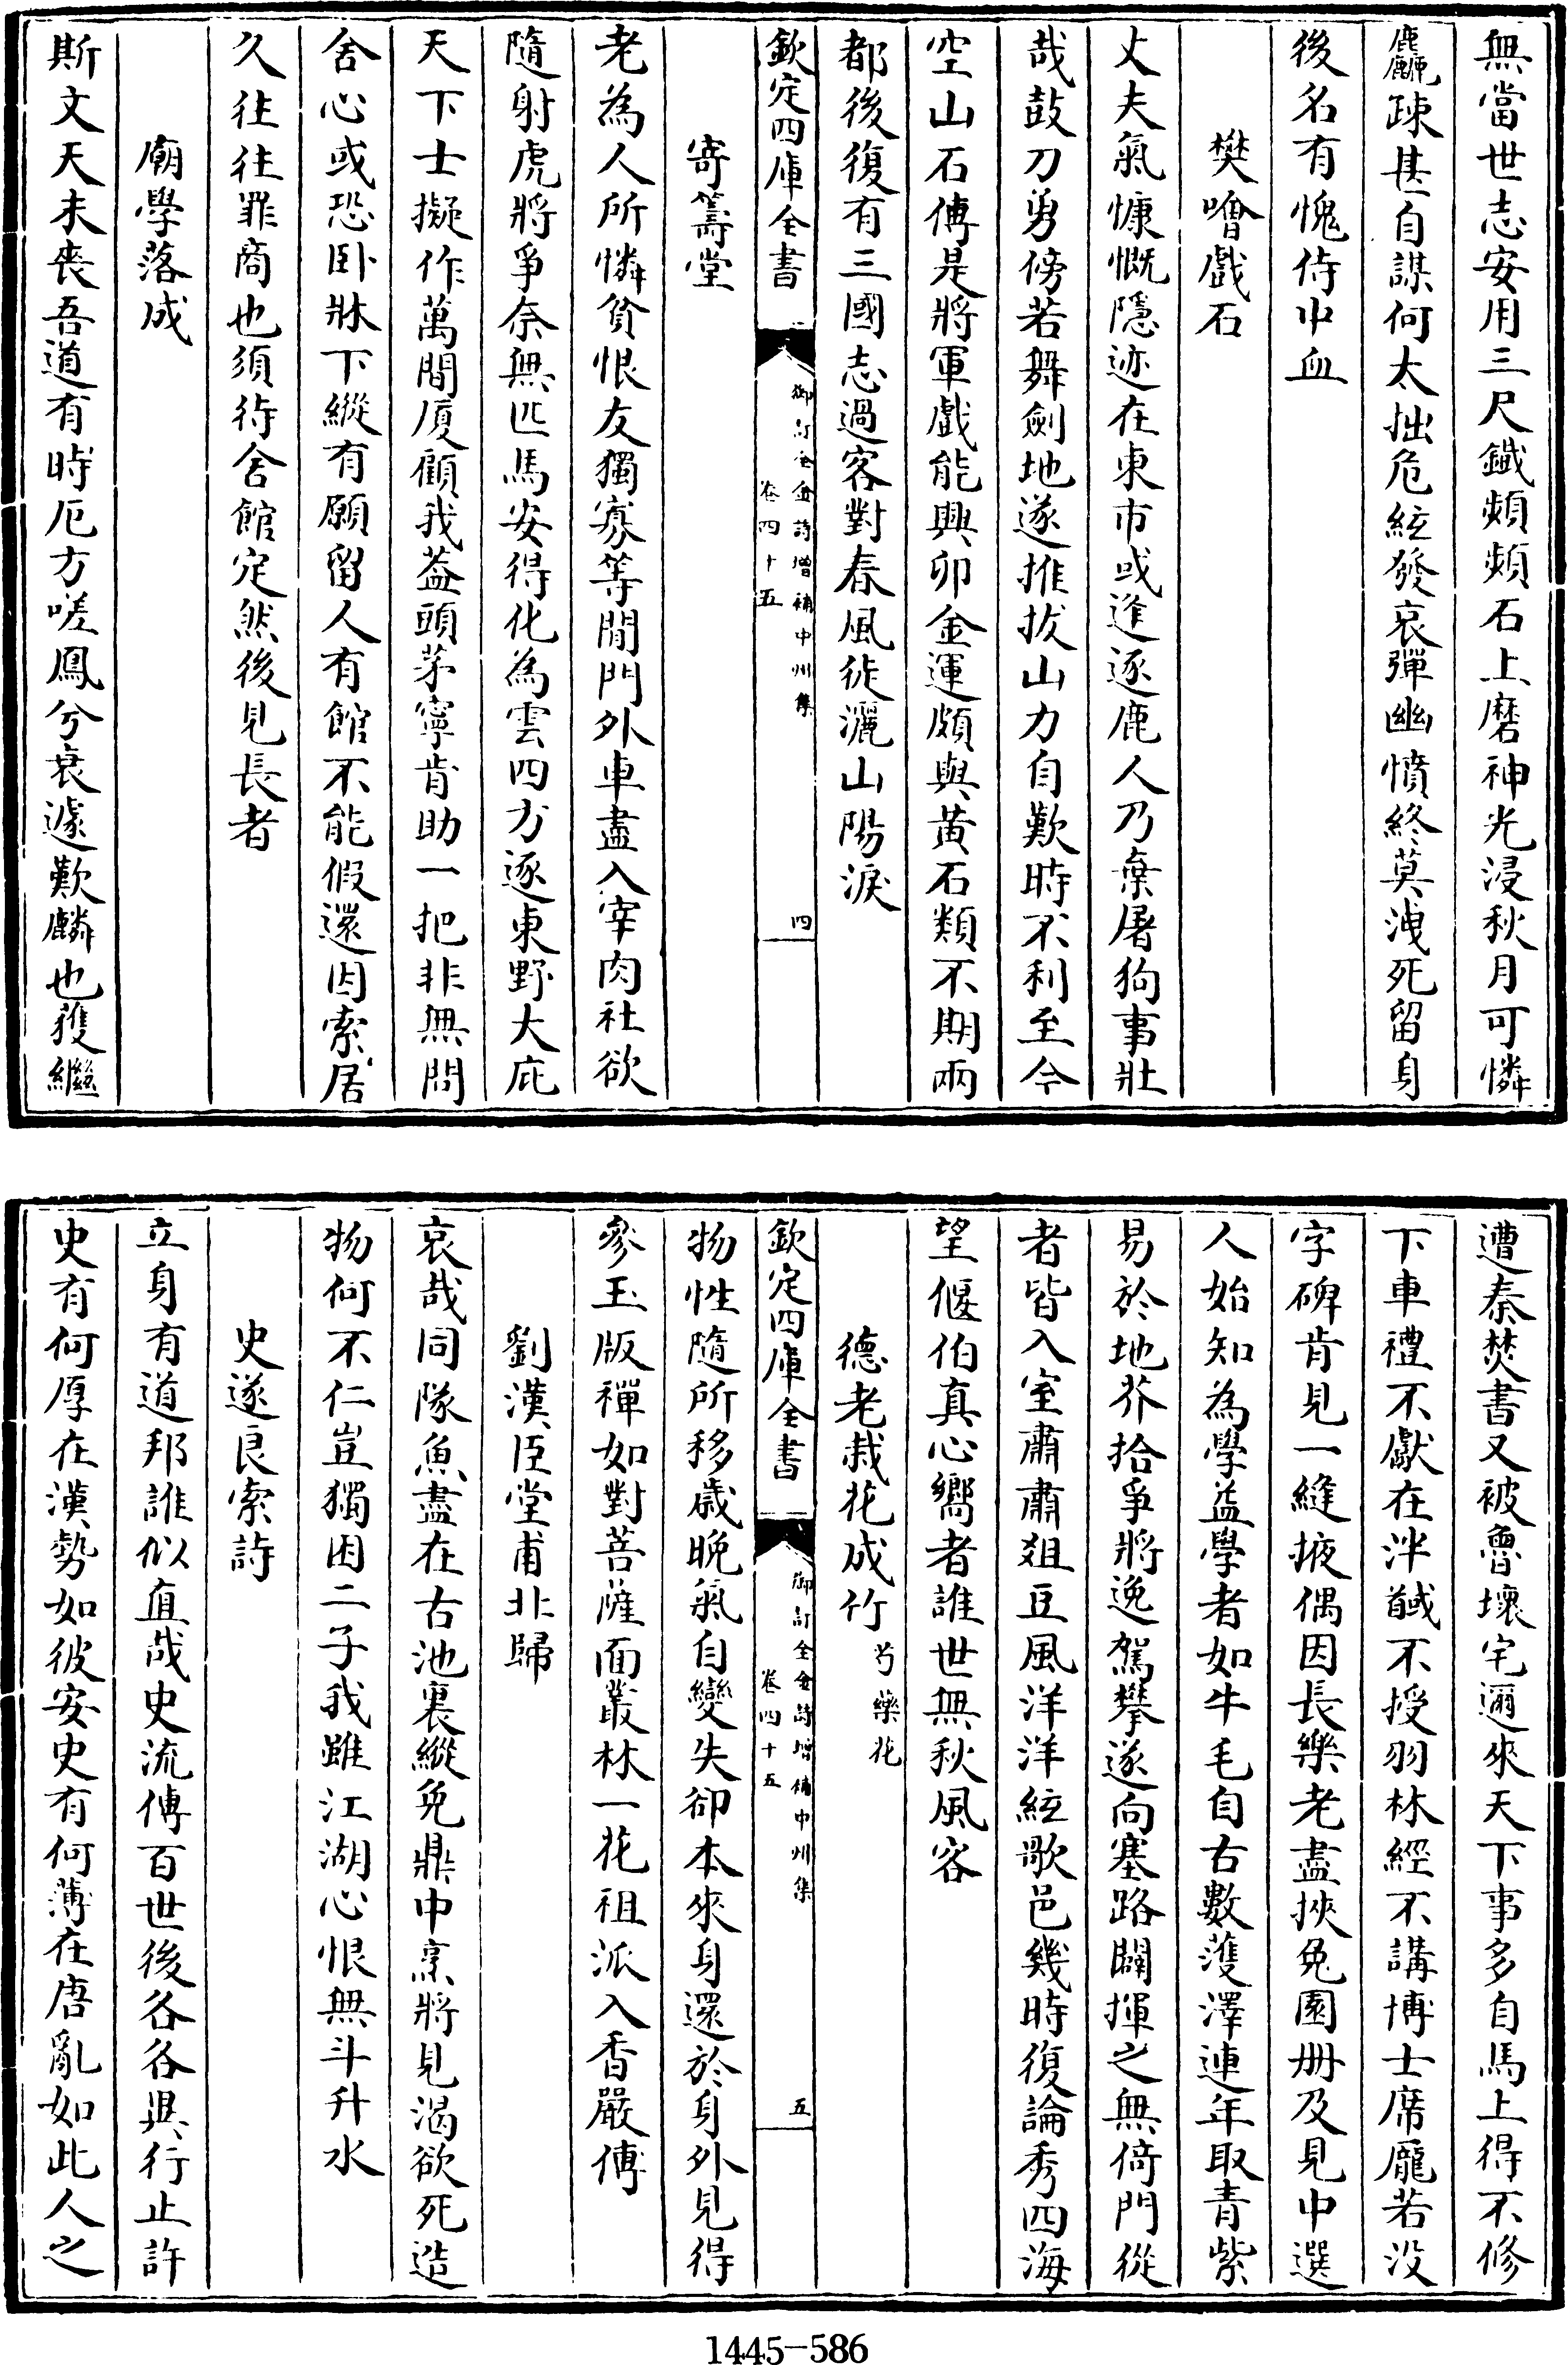 無當世志安用三尺鐵頻頻石上磨神光浸秋月可憐
麤疎甚自謀何太拙危絃發哀彈幽憤終莫洩死留身
後名有愧侍中血
樊噲戲石
丈夫氣慷慨隱迹在東市或逢逐鹿人乃棄屠狗事壯
哉鼓刀勇傍若舞劍地遂推拔山力自歎時不利至今
空山石傳是將軍戲能興卯金運頗與黃石類不期兩
都後復有三國志過客對春風徒灑山陽淚
欽定四庫全書
御訂全金詩增補中州集
卷四十五
四
寄籌堂
老為人所憐貧恨友獨寡等閒門外車盡入宰肉社欲
隨射虎將爭奈無匹馬安得化為雲四方逐東野大庇
天下士擬作萬間厦顧我葢頭茅寧肯助一把非無問
舍心或恐卧牀下縱有願留人有館不能假還因索居
久往往罪商也須待舍館定然後見長者
廟學落成
斯文天未喪吾道有時厄方嗟鳳兮衰遽歎麟也獲繼
遭秦焚書又被魯壞宅邇來天下事多自馬上得不修
下車禮不獻在泮馘不授羽林經不講博士席龎若没
字碑肯見一縫掖偶因長樂老盡挾兔園册及見中選
人始知為學益學者如牛毛自右數蒦澤連年取青紫
易於地芥拾爭將逸駕攀遂向塞路闢揮之無倚門從
者皆入室肅肅爼豆風洋洋絃歌邑幾時復論秀四海
望偃伯真心嚮者誰世無秋風客
德老栽花成竹芍藥花
欽定四庫全書
御訂全金詩增補中州集
卷四十五
五
物性隨所移歲晚氣自變失卻本來身還於身外見得
參玉版禪如對菩薩面叢林一花祖派入香嚴傳
劉漢臣堂甫北歸
哀哉同隊魚盡在古池裏縱免鼎中烹將見渴欲死造
物何不仁豈獨困二子我雖江湖心恨無斗升水
史遂良索詩
立身有道邦誰似直哉史流傳百世後各各異行止許
史有何厚在漢勢如彼安史有何薄在唐亂如此人之
1445-586